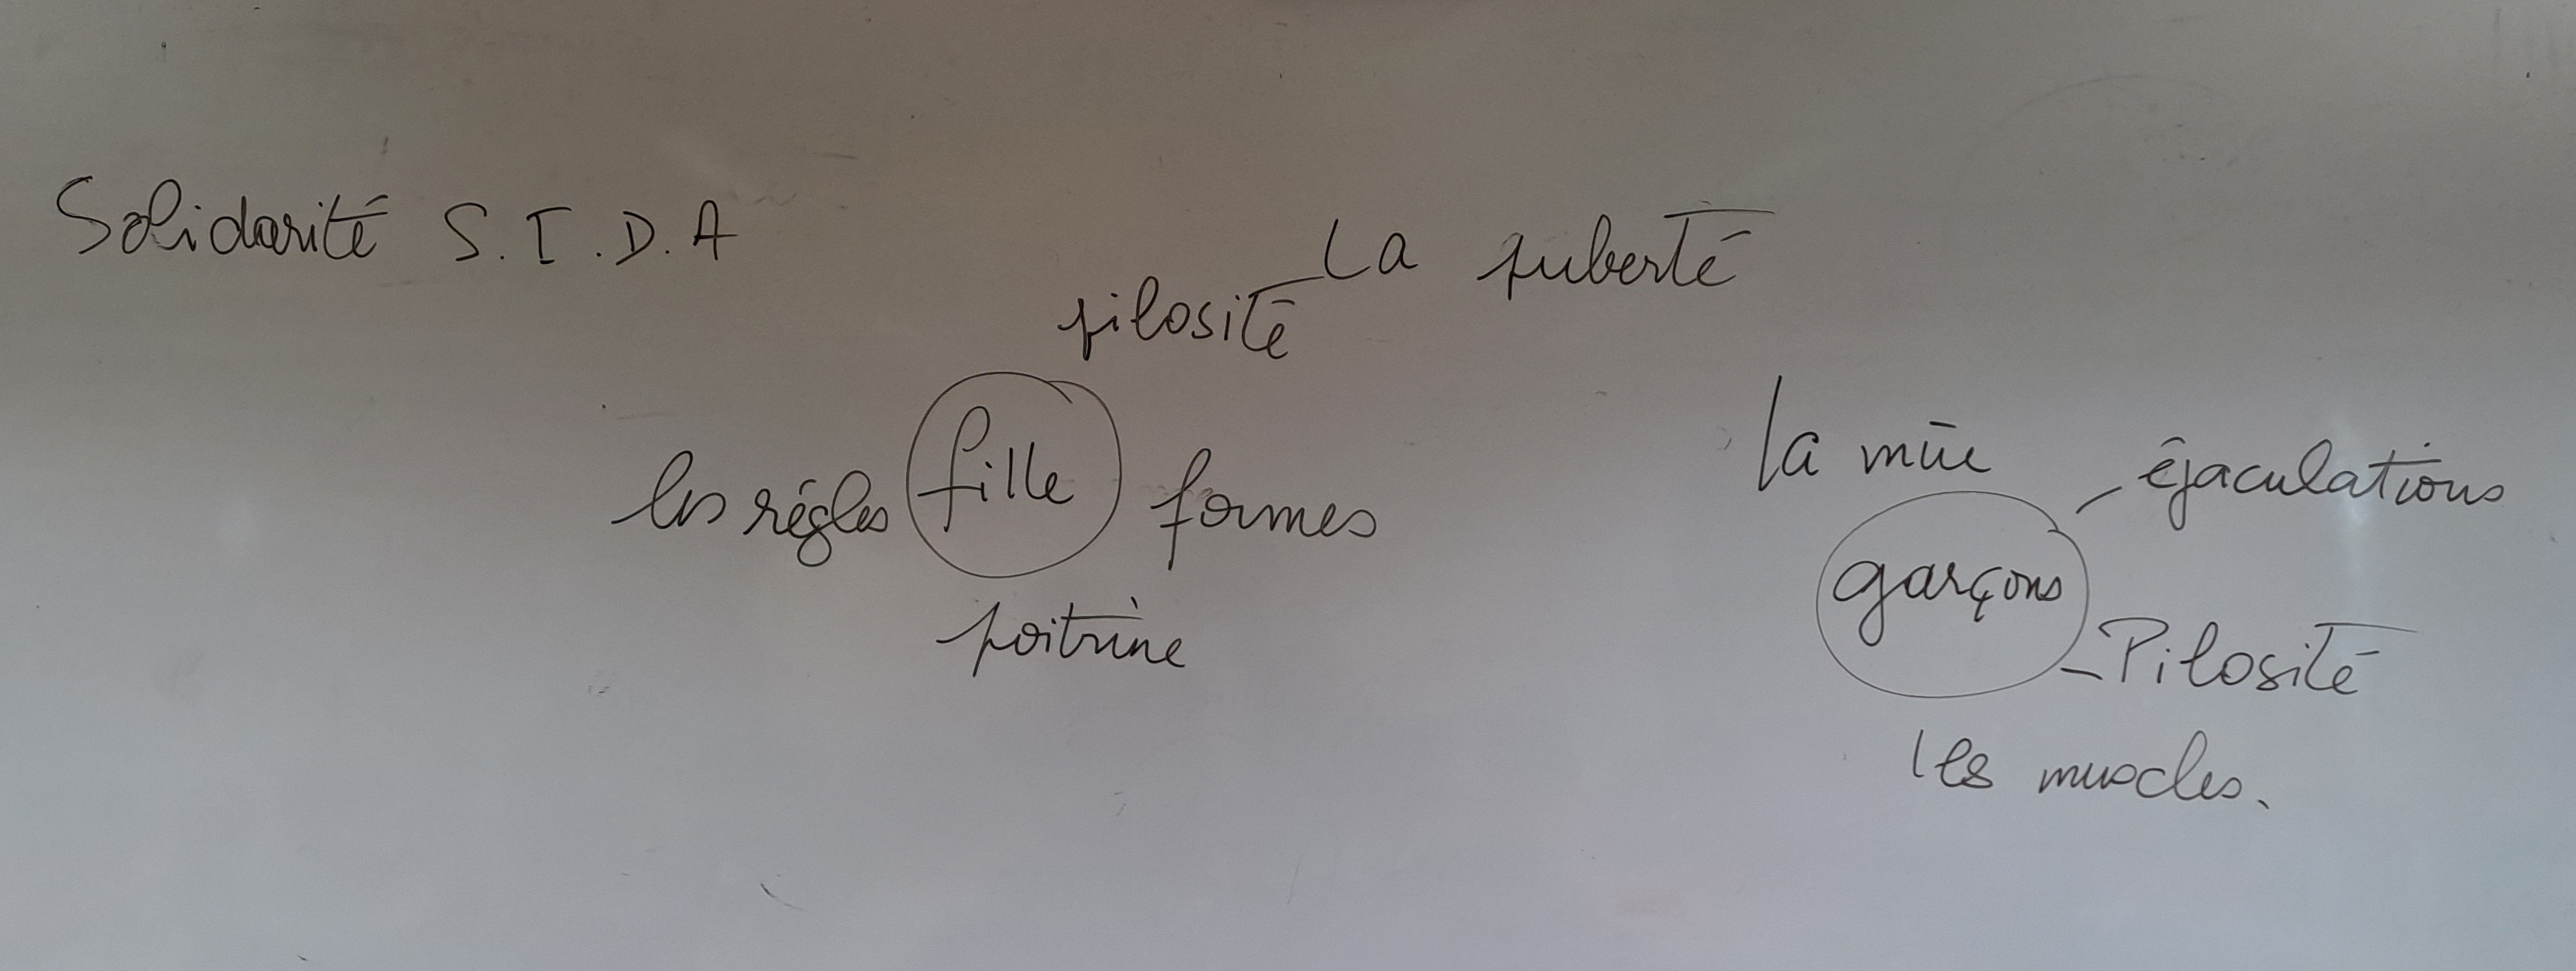 Solidarité S.I.D.A
La puberté
pilosité
les régles
fille
formes
poitrine
la mûe
éjaculations
garçons
- Pilosité
les muscles.